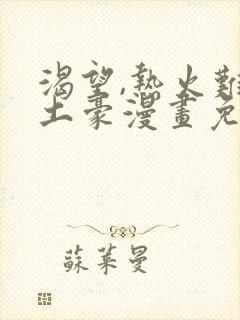 渴望,熱火難
土豪漫畫免
蘇萊曼